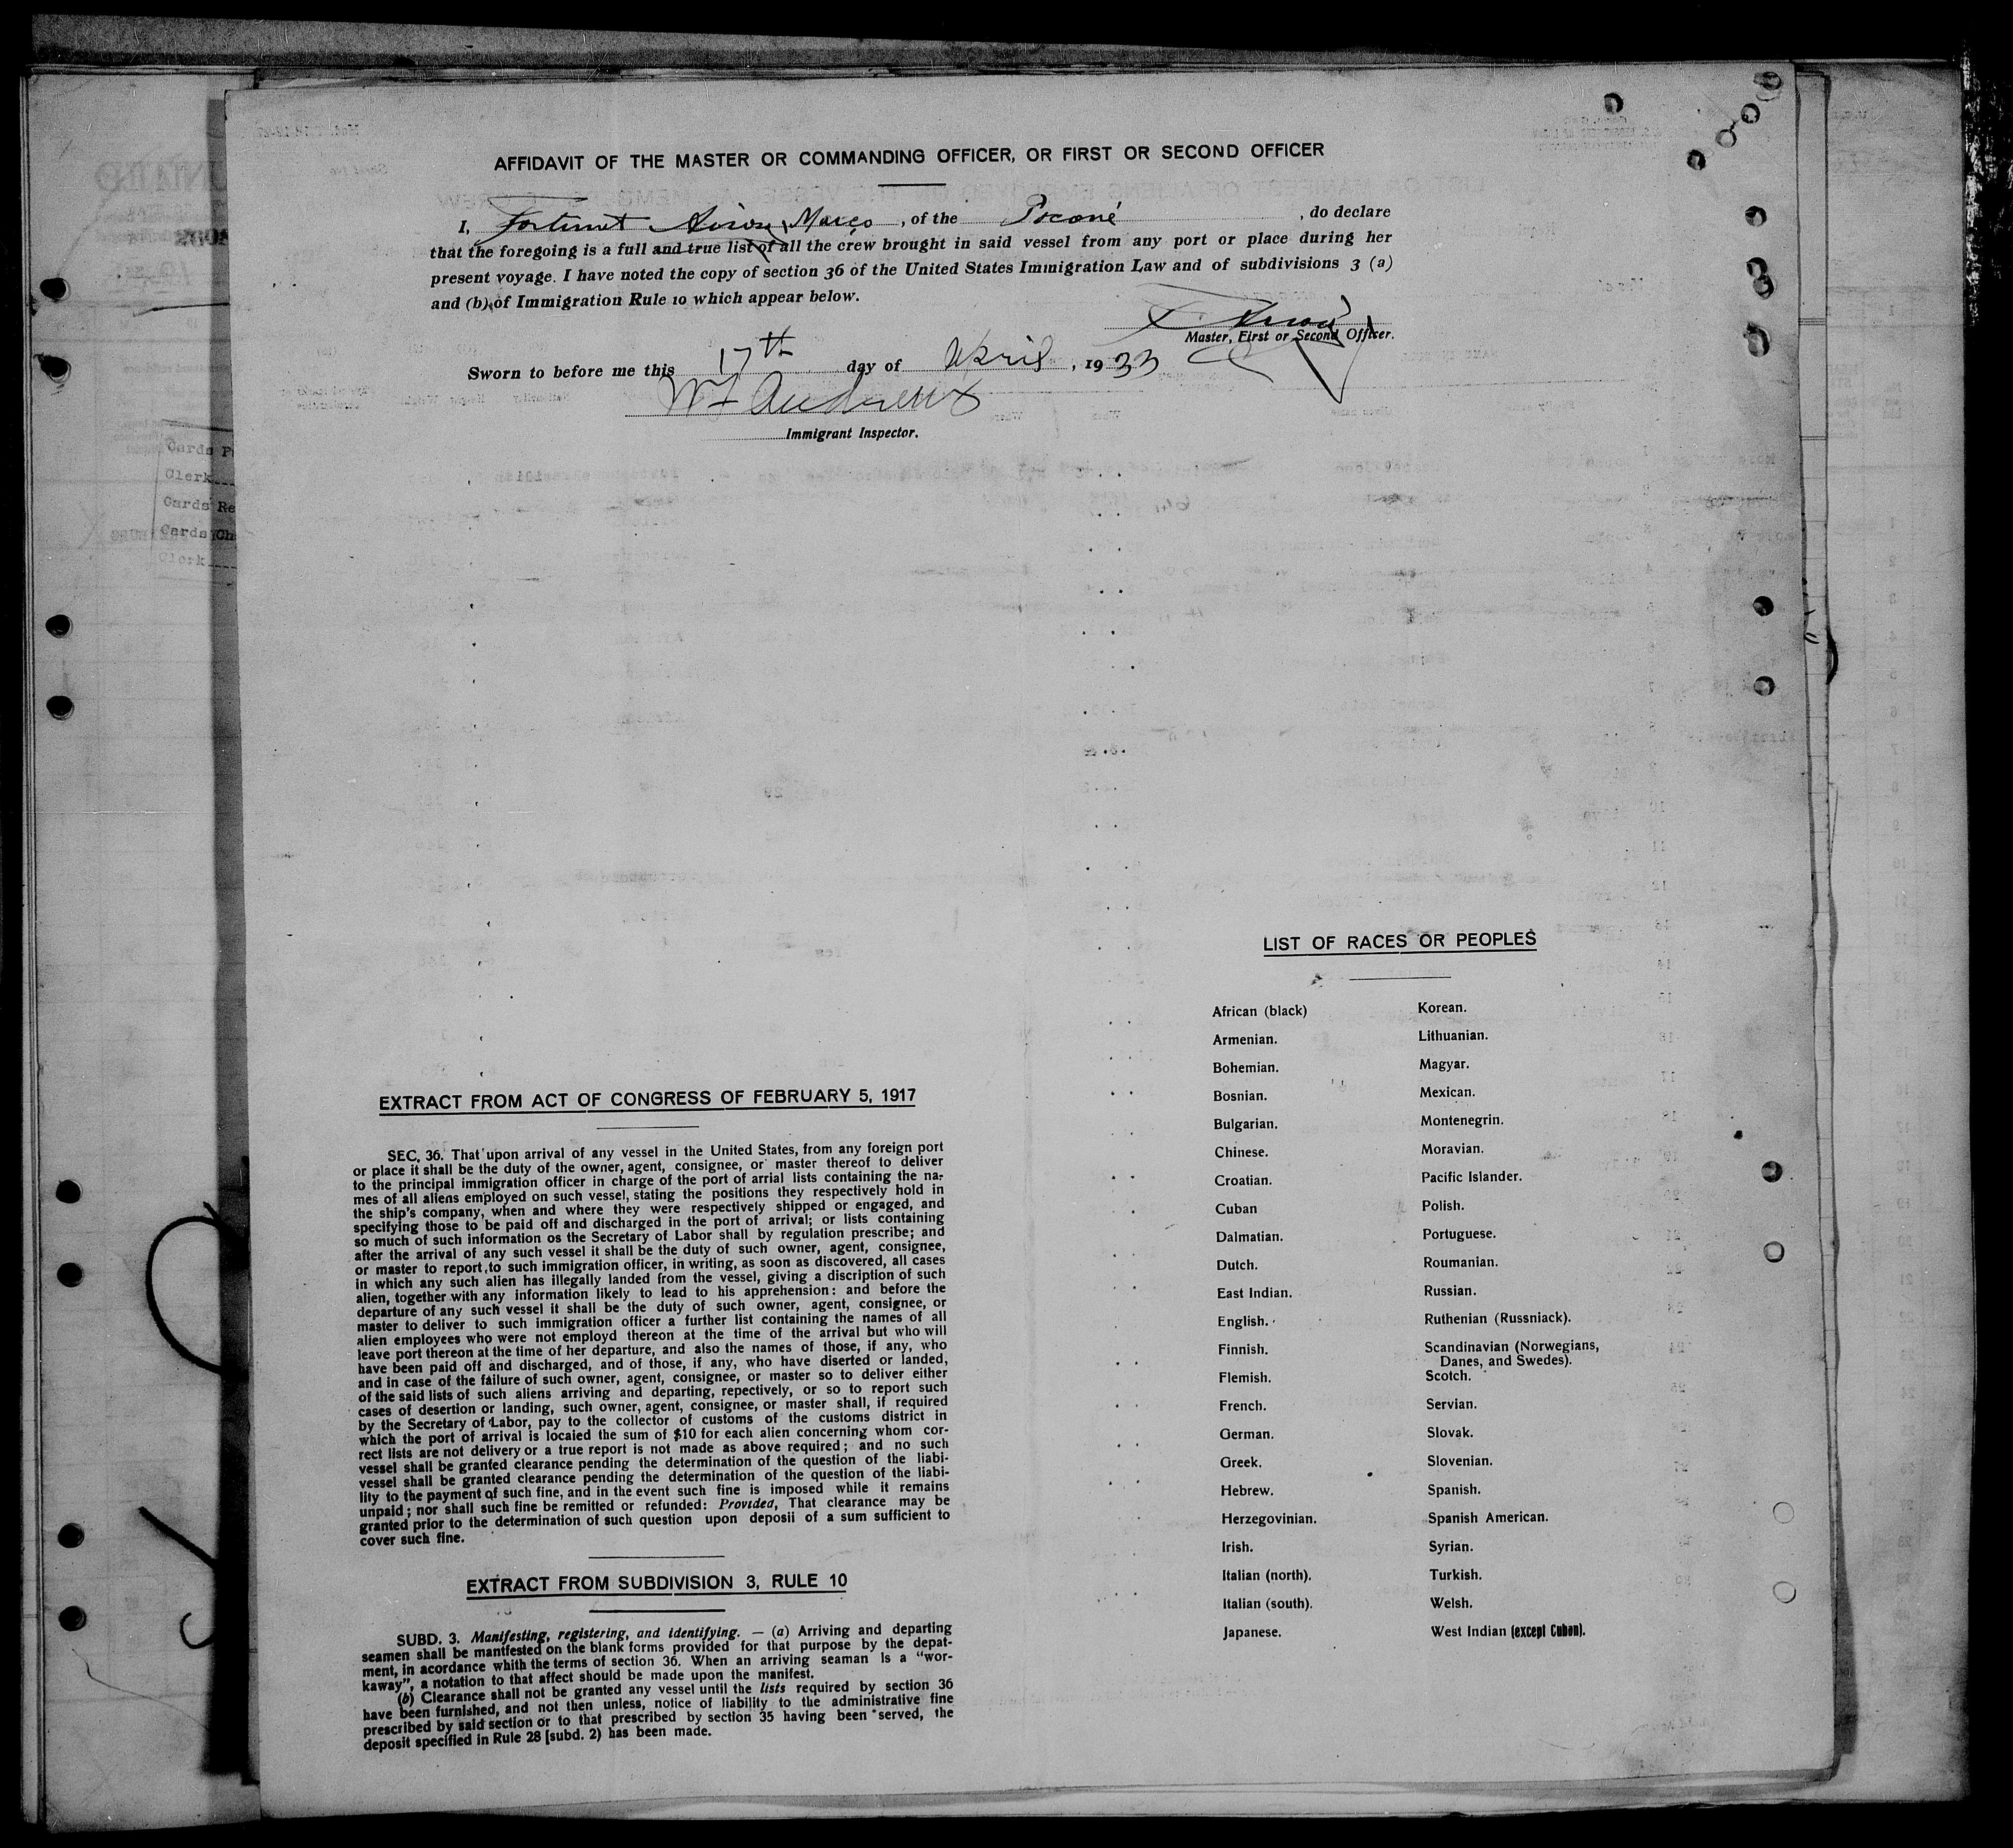 AFFIDAVIT OF THE MASTER OR COMMANDING OFFICER, OR FIRST OR SECOND OFFICER
I, Fortunat, of the Poconé, do declare
that the foregoing is a full and true list of all the crew brought in said vessel from any port or place during her
present voyage. I have noted the copy of section 36 of the United States Immigration Law and of subdivisions 3 (a)
and (b) of Immigration Rule 10 which appear below.
Master, First or Second Officer.
Sworn to before me this 17th day of April, 1933
Andrews
Immigrant Inspector.
Cards
Clerk
Cards Re
Cards Ch
Clerk
EXTRACT FROM ACT OF CONGRESS OF FEBRUARY 5, 1917
SEC. 36. That upon arrival of any vessel in the United States, from any foreign port
or place it shall be the duty of the owner, agent, consignee, or master thereof to deliver
to the principal immigration officer in charge of the port of arrial lists containing the na-
mes of all aliens employed on such vessel, stating the positions they respectively hold in
the ship's company, when and where they were respectively shipped or engaged, and
specifying those to be paid off and discharged in the port of arrival; or lists containing
so much of such information os the Secretary of Labor shall by regulation prescribe; and
after the arrival of any such vessel it shall be the duty of such owner, agent, consignee,
or master to report to such immigration officer, in writing, as soon as discovered, all cases
in which any such alien has illegally landed from the vessel, giving a discription of such
alien, together with any information likely to lead to his apprehension: and before the
departure of any such vessel it shall be the duty of such owner, agent, consignee, or
master to deliver to such immigration officer a further list containing the names of all
alien employees who were not employd thereon at the time of the arrival but who will
leave port thereon at the time of her departure, and also the names of those, if any, who
have been paid off and discharged, and of those, if any, who have diserted or landed,
and in case of the failure of such owner, agent, consignee, or master so to deliver either
of the said lists of such aliens arriving and departing, repectively, or so to report such
cases of desertion or landing, such owner, agent, consignee, or master shall, if required
by the Secretary of Labor, pay to the collector of customs of the customs district in
which the port of arrival is locaied the sum of $10 for each alien concerning whom cor-
rect lists are not delivery or a true report is not made as above required; and no such
vessel shall be granted clearance pending the determination of the question of the liabi-
vessel shall be granted clearance pending the determination of the question of the liabi-
lity to the payment of such fine, and in the event such fine is imposed while it remains
unpaid; nor shall such fine be remitted or refunded: Provided, That clearance may be
granted prior to the determination of such question upon deposii of a sum sufficient to
cover such fine.
EXTRACT FROM SUBDIVISION 3, RULE 10
SUBD. 3. Manifesting, registering, and identifying. — (a) Arriving and departing
seamen shall be mantfested on the blank forms provided for that purpose by the depat-
ment, in acordance whith the terms of section 36. When an arriving seaman is a "wor-
kaway", a notation to that affect should be made upon the manifest.
(b) Clearance shall not be granted any vessel until the lists required by section 36
have been furnished, and not then unless, notice of liability to the administrative fine
prescribed by said section or to that prescribed by section 35 having been served, the
deposit specified in Rule 28 [subd. 2) has been made.
LIST OF RACES OR PEOPLES
African (black)
Armenian.
Bohemian.
Bosnian.
Bulgarian.
Chinese.
Croatian.
Cuban
Dalmatian.
Dutch.
East Indian.
English.
Finnish.
Flemish.
French.
German.
Greek.
Hebrew.
Herzegovinian.
Irish.
Italian (north).
Italian (south).
Japanese.
Korean.
Lithuanian.
Magyar.
Mexican.
Montenegrin.
Moravian.
Pacific Islander.
Polish.
Portuguese.
Roumanian.
Russian.
Ruthenian (Russniack).
Scandinavian (Norwegians,
Danes, and Swedes).
Scotch.
Servian.
Slovak.
Slovenian.
Spanish.
Spanish American.
Syrian.
Turkish.
Welsh.
West Indian (except Cuban).